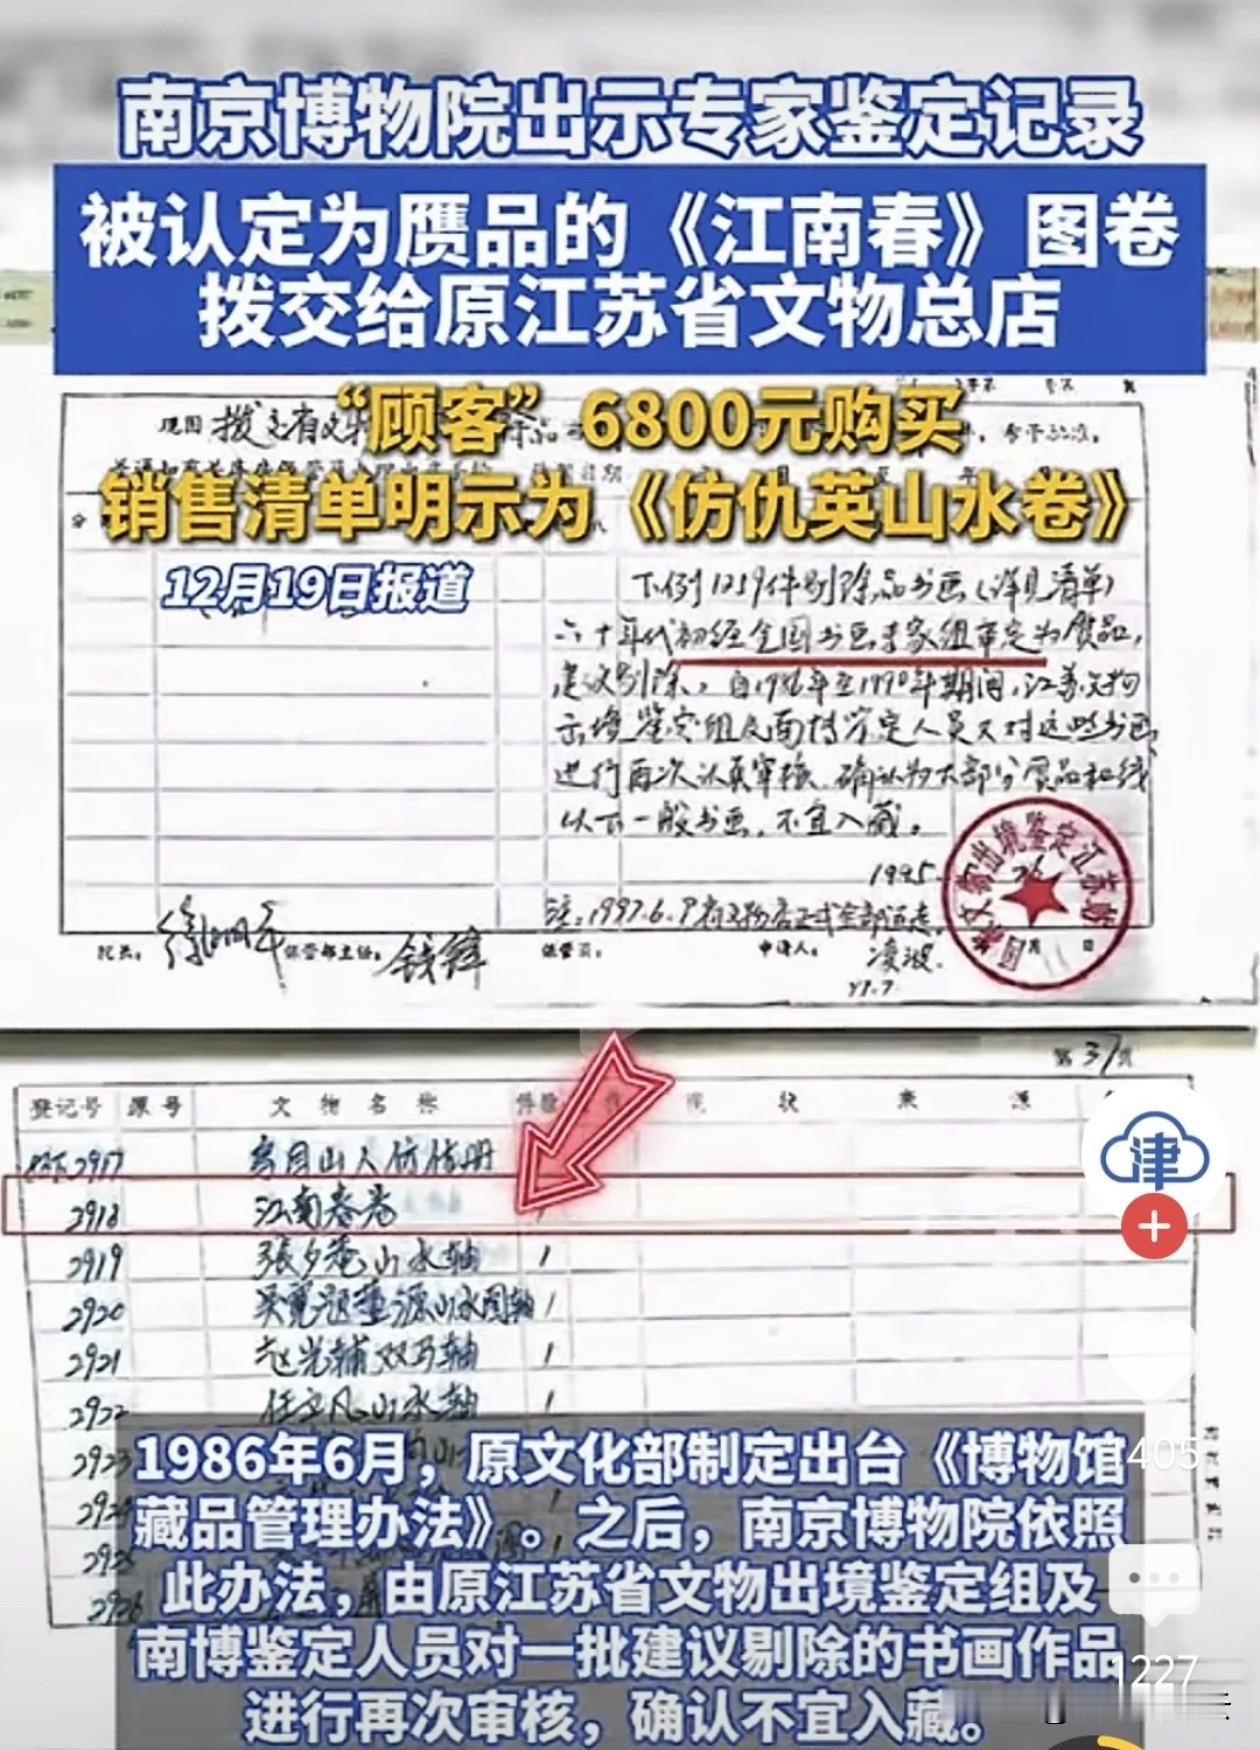 南京博物院出示专家鉴定记录
被认定为赝品的《江南春》图卷
拨交给原江苏省文物总店
“顾客”6800元购买
销售清单明示为《仿仇英山水卷》
12月19日报道
下例1259件剔除品书画(详见清单)
六十年代初经全国书画专家组审定为赝品,
建议剔除。自1986年至1990年期间,江苏文物
出境鉴定组及南博鉴定人员又对这些书画
进行再次认真审核,确认为大部分赝品和线
以下一般书画,不宜入藏。
1995
注:1997.6.9
院长:徐湖平 保管部主任:钱锋 保管员: 申请人:凌波
第37页
登记号 原号 文物名称 件数 现状 来源
2917
2918 江南春卷
2919 張夕菴山水轴 1
2920 吴寬题董源山水图轴 1
2921 赵光辅双马轴 1
2922 任立凡山水轴 1
2923
津
1405
1986年6月，原文化部制定出台《博物馆
藏品管理办法》。之后，南京博物院依照
此办法，由原江苏省文物出境鉴定组及
南博鉴定人员对一批建议剔除的书画作品
进行再次审核，确认不宜入藏。
1227